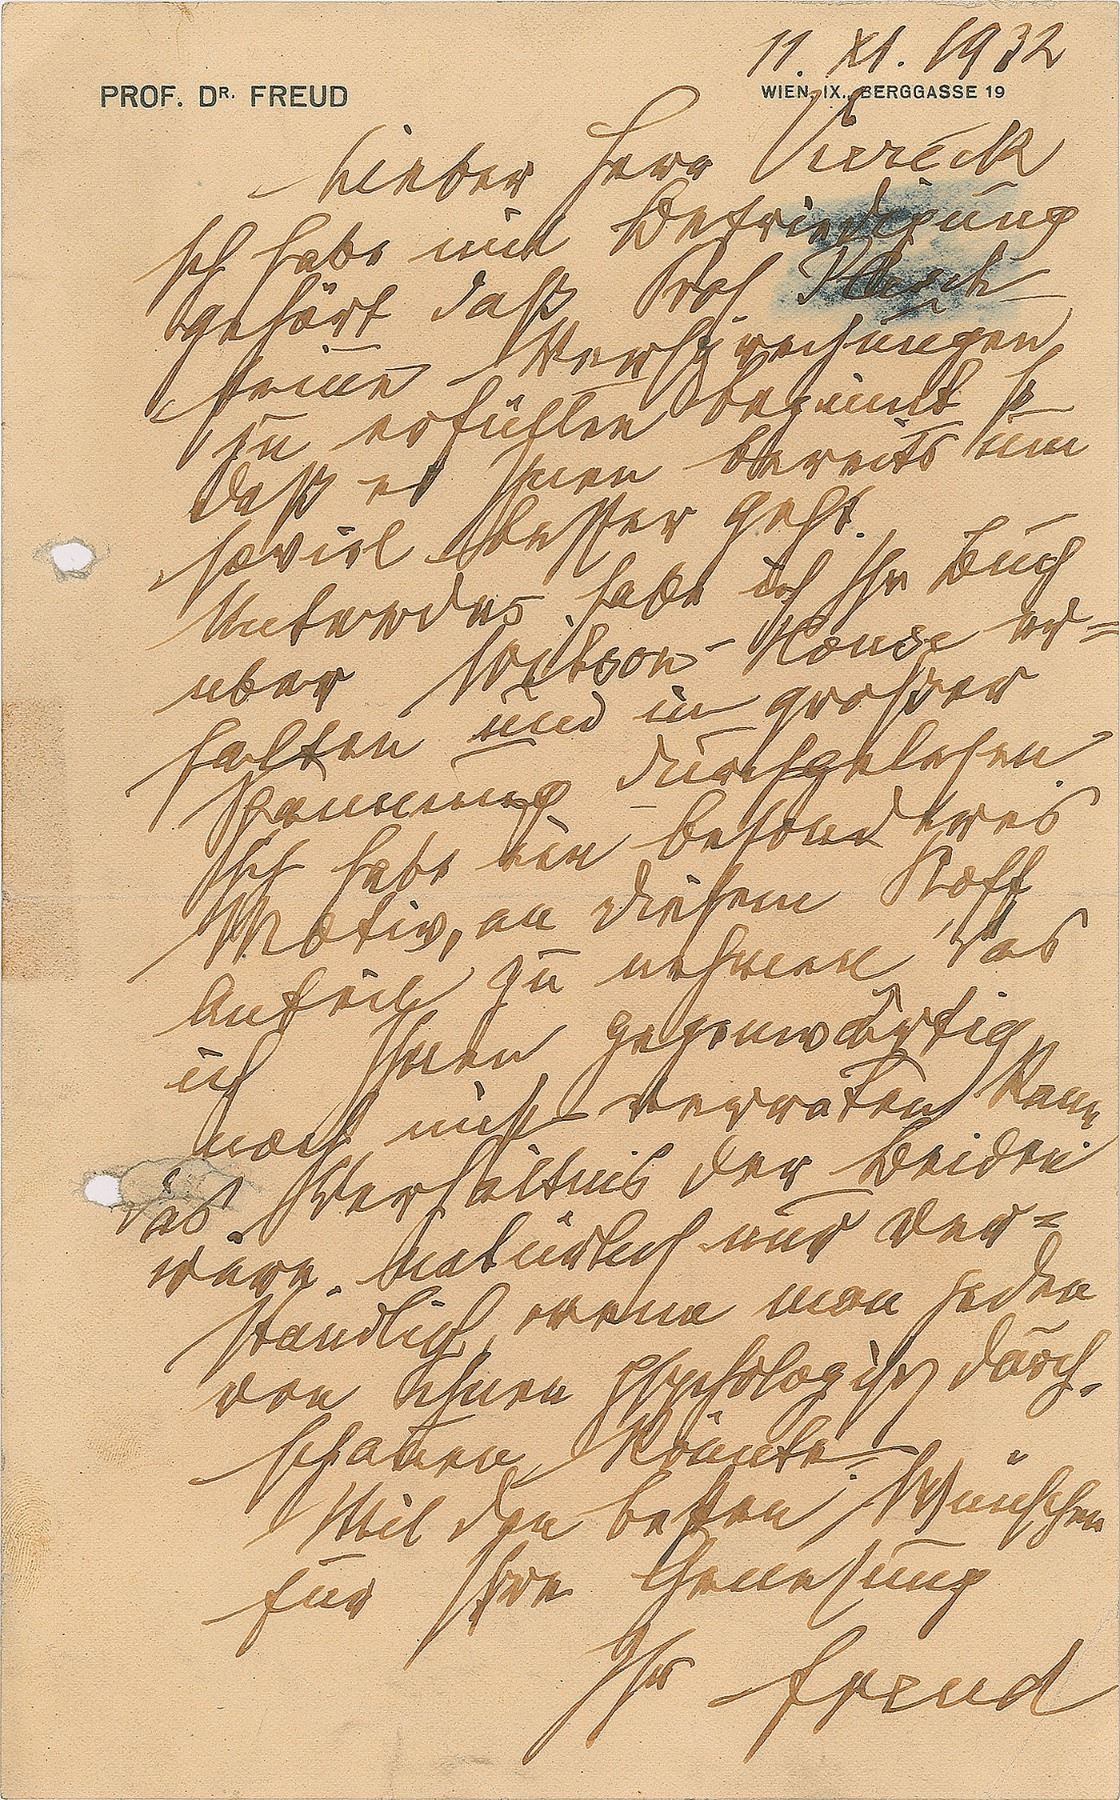 11. XI. 1932
PROF. DR. FREUD
WIEN, IX., BERGGASSE 19
Lieber Herr Viereck
Ich habe mit Befriedigung
gehört daß Prof
seine Versprechungen
zu erfüllen beginnt so
daß es Ihnen bereits um
soviel besser geht.
Unterdes habe ich Ihr Buch
über Wilson-House er=
halten und in großer
Spannung durchgelesen.
Ich habe ein besonderes
Motiv, an diesem Stoff
Anteil zu nehmen das
ich Ihnen gegenwärtig
noch nicht verraten kann
das Verhältnis der Beiden
wäre natürlich nur ver=
ständlich, wenn man jeden
von ihnen psychologisch durch-
schauen könnte.
Mit den besten Wünschen
für Ihre Genesung
Ihr Freud